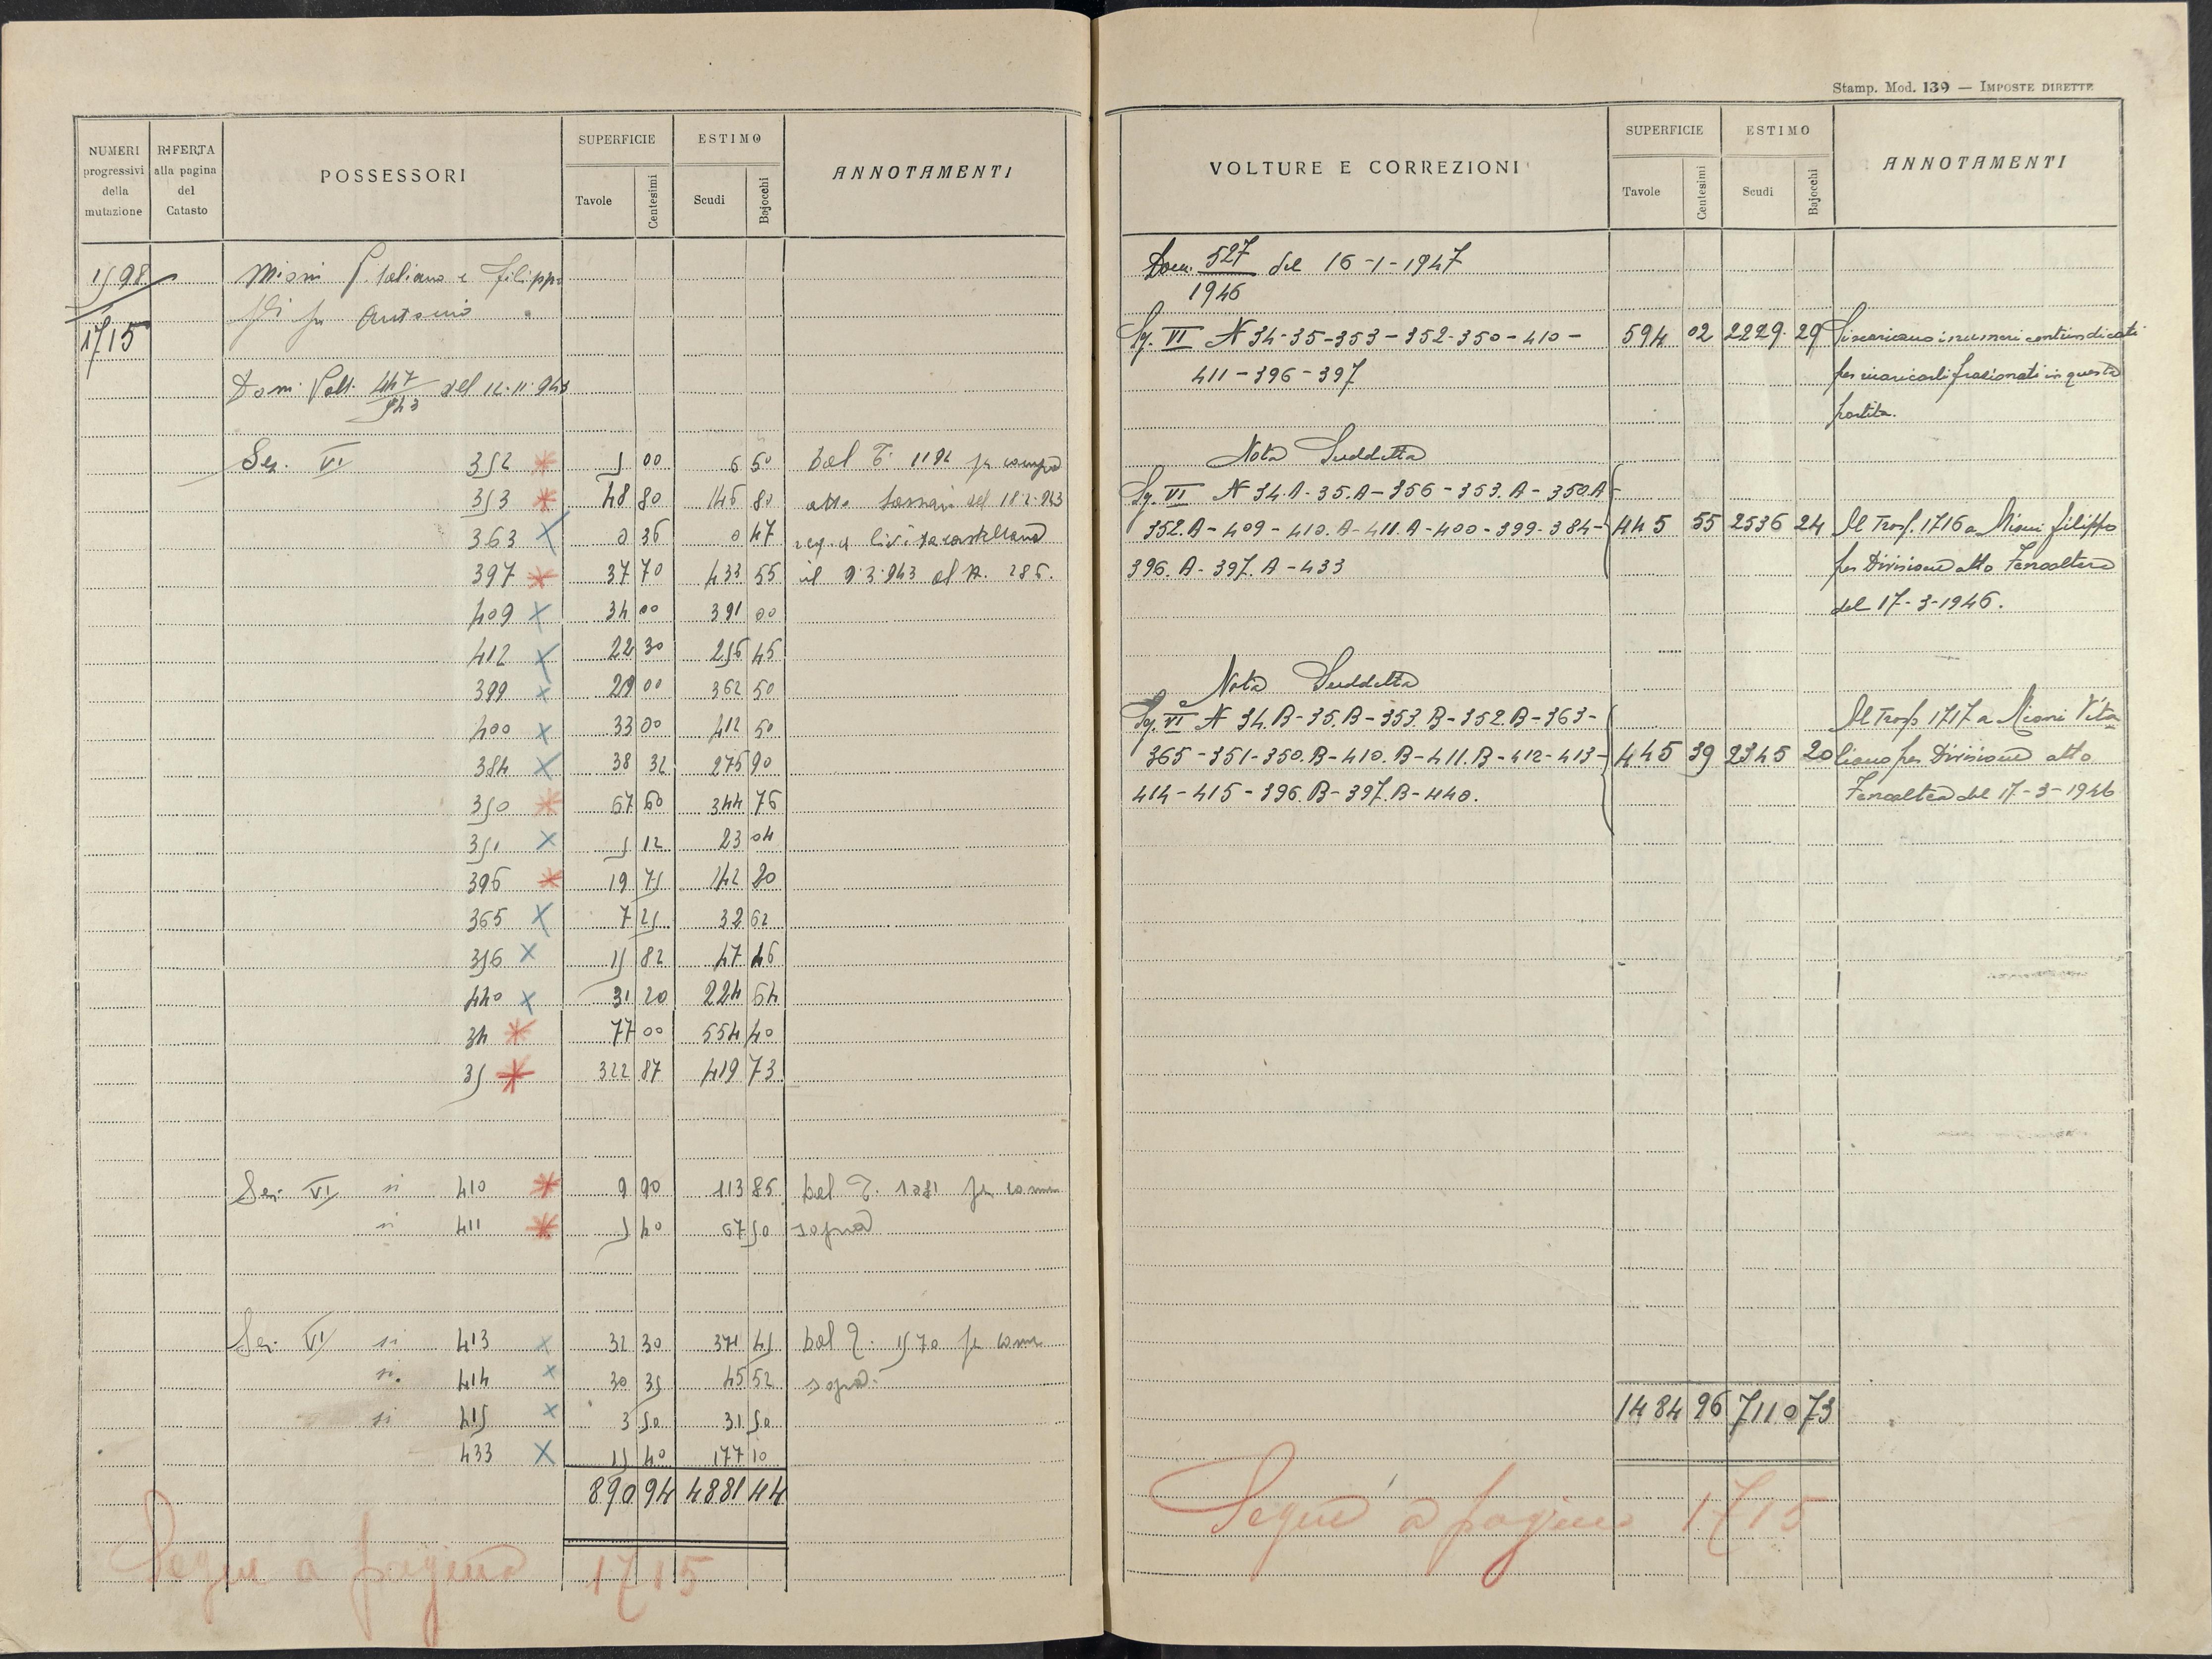 NUMERI progressivi della mutazione
RIFERTA alla pagina del Catasto
POSSESSORI
SUPERFICIE
Tavole
Centesimi
ESTIMO
Scudi
Bajocchi
ANNOTAMENTI
1598
1715
Mioni Vitaliano e Filippo
fu Antonio
Dom. Volt. 447/943 del 12.11.943
Sez. VI 352 5 00 6 50 Dal T. 1192 per compra
353 48 80 146 80 atto del 18.2.943
363 0 36 0 47 reg. a Civitacastellana
397 37 70 433 55 il 9.3.943 al N. 285.
409 34 00 391 00
412 22 30 256 45
399 29 00 362 50
400 33 00 412 50
384 38 32 275 90
350 67 60 344 76
351 5 12 23 04
396 19 75 142 20
365 7 25 32 62
356 15 82 47 46
440 31 20 224 64
34 77 00 554 40
35 322 87 419 73
Sez. VI si 410 9 90 113 85 Dal T. 1081 per come
si 411 5 40 67 50 sopra
Sez. VI si 413 32 30 371 45 Dal T. 1570 per come
si. 414 30 35 45 52 sopra.
si 415 3 50 31 50
433 15 40 177 10
890 94 4881 44
Segue a pagina 1715
Stamp. Mod. 139 — IMPOSTE DIRETTE
VOLTURE E CORREZIONI
SUPERFICIE
Tavole
Centesimi
ESTIMO
Scudi
Bajocchi
ANNOTAMENTI
Dom. 527/1946 del 16-1-1947
Sez. VI N 34-35-353-352-350-410- 594 02 2229 29 Si scaricano i numeri contrindicati
411-396-397 per ricaricarli frazionati in questa
partita.
Nota Suddetta
Sez. VI N 34.A-35.A-356-353.A-350.A-
352.A-409-410.A-411.A-400-399-384- 445 55 2536 24 Al Trasp. 1716 a Mioni Filippo
396.A-397.A-433 per Divisione atto
del 17-3-1946.
Nota Suddetta
Sez. VI N 34.B-35.B-353.B-352.B-363- Al Trasp 1717 a Mioni Vita
365-351-350.B-410.B-411.B-412-413- 445 39 2345 20 liano per Divisione atto
414-415-396.B-397.B-440. del 17-3-1946
1484 96 7110 73
Segue a pagina 1715